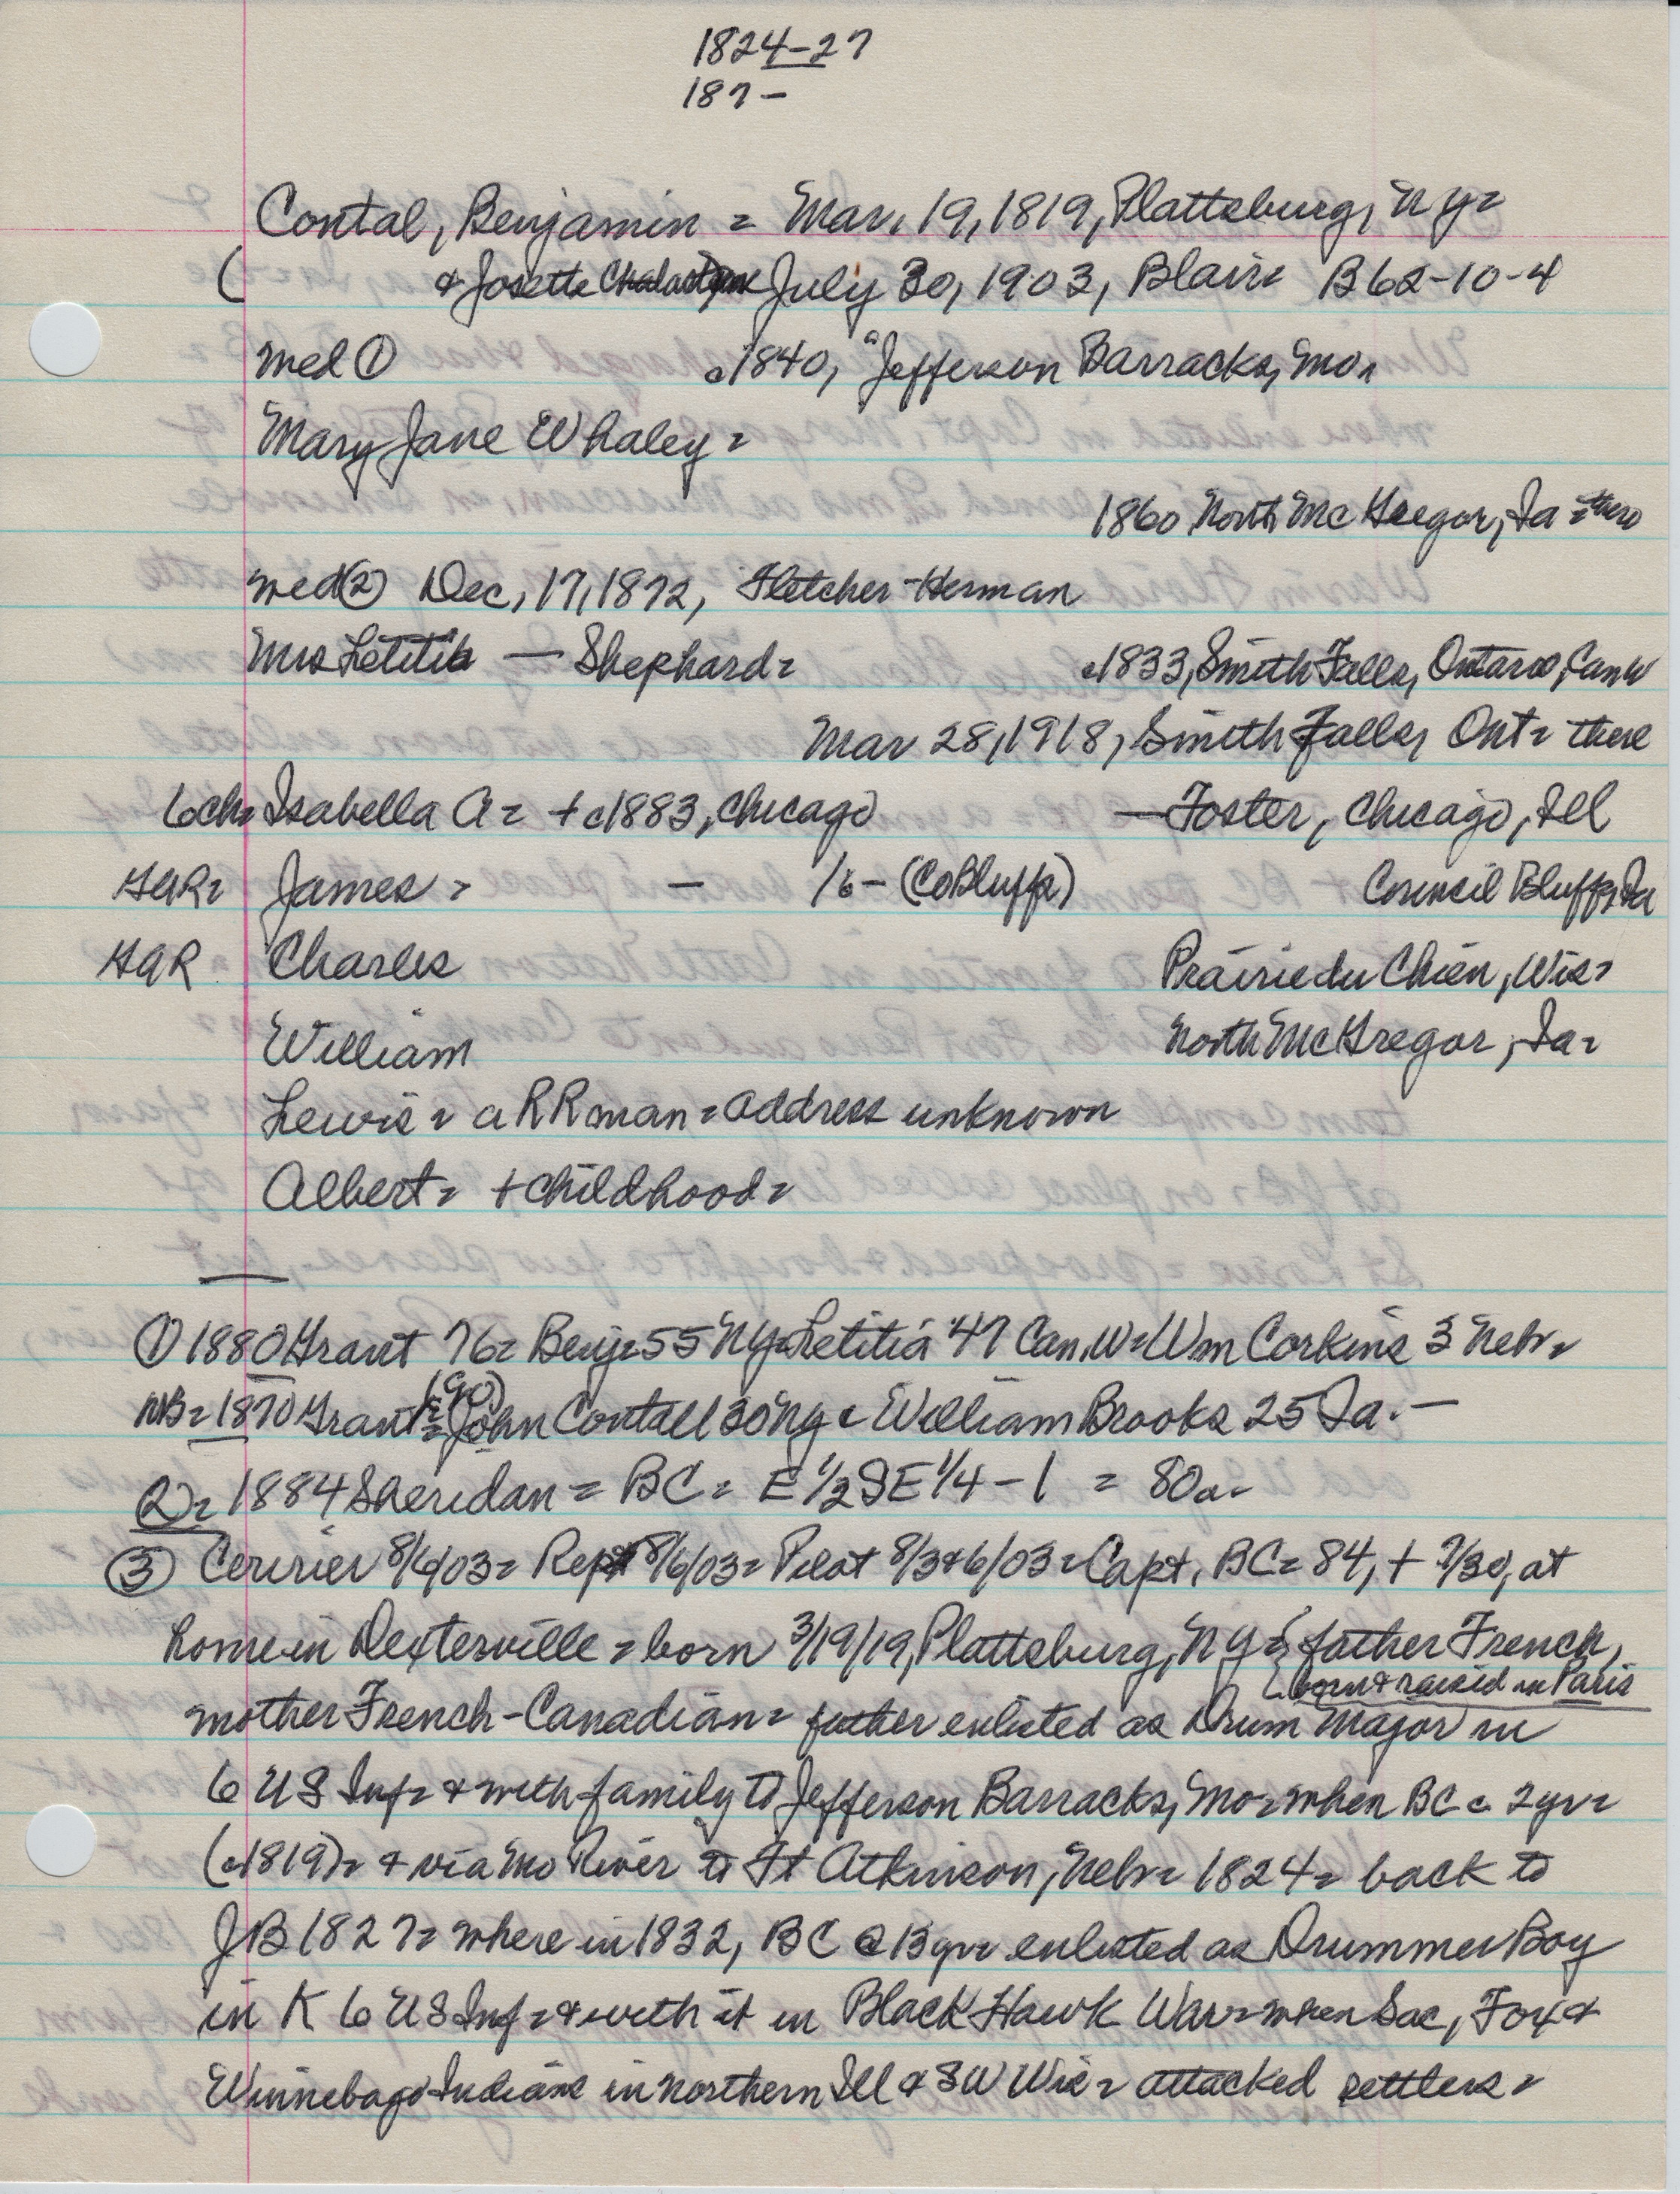 1824-27
187-
Contal, Benjamin = Mar, 19, 1819, Plattsburg, NY=
( & Josette July 30, 1903, Blair= B62-10-4
med ① c1840, "Jefferson Barracks, Mo,
Mary Jane Whaley=
1860, North McGregor, Ia = there
med② Dec, 17, 1872, Fletcher-Herman
Mrs Letitia — Shephard= c1833, Smith Falls, Ontario, Can W
Mar 28, 1918, Smith Falls, Ont= there
6ch= Isabella A= + c1883, Chicago — Foster, Chicago, Ill
GAR= James = - 1/6 - (CoBluffs) Council Bluffs, Ia
GAR Charles Prairie du Chien, Wis=
William North McGregor, Ia=
Lewis = a RR man = address unknown
Albert= + childhood=
① 1880 Grant 76= Benj=55 NY= Letitia 47 Can.W= Wm Corkins 3 Nebr=
NB= 1870 Grant= (90) John Contall 30 NY & William Brooks 25 Ia.—
②= 1884 Sheridan = BC= E 1/2 SE 1/4 - 1 = 80a-
③ Courier 8/6/03= Rept 8/6/03= Pilot 8/3&6/03= Capt, BC= 84, + 7/30, at
home in Dexterville = born 3/19/19, Plattsburg, NY= { father French,
{ born & raised in Paris
mother French-Canadian= father enlisted as Drum Major in
6 US Inf= & with family to Jefferson Barracks, Mo= when BC c 2yr=
(c1819)= & via Mo River to Ft Atkinson, Nebr= 1824= back to
JB 1827= where in 1832, BC @ 13yr= enlisted as Drummer Boy
in K 6 US Inf= & with it in Black Hawk War= when Sac, Fox &
Winnebago Indians in northern Ill & SW Wis= attacked settlers=